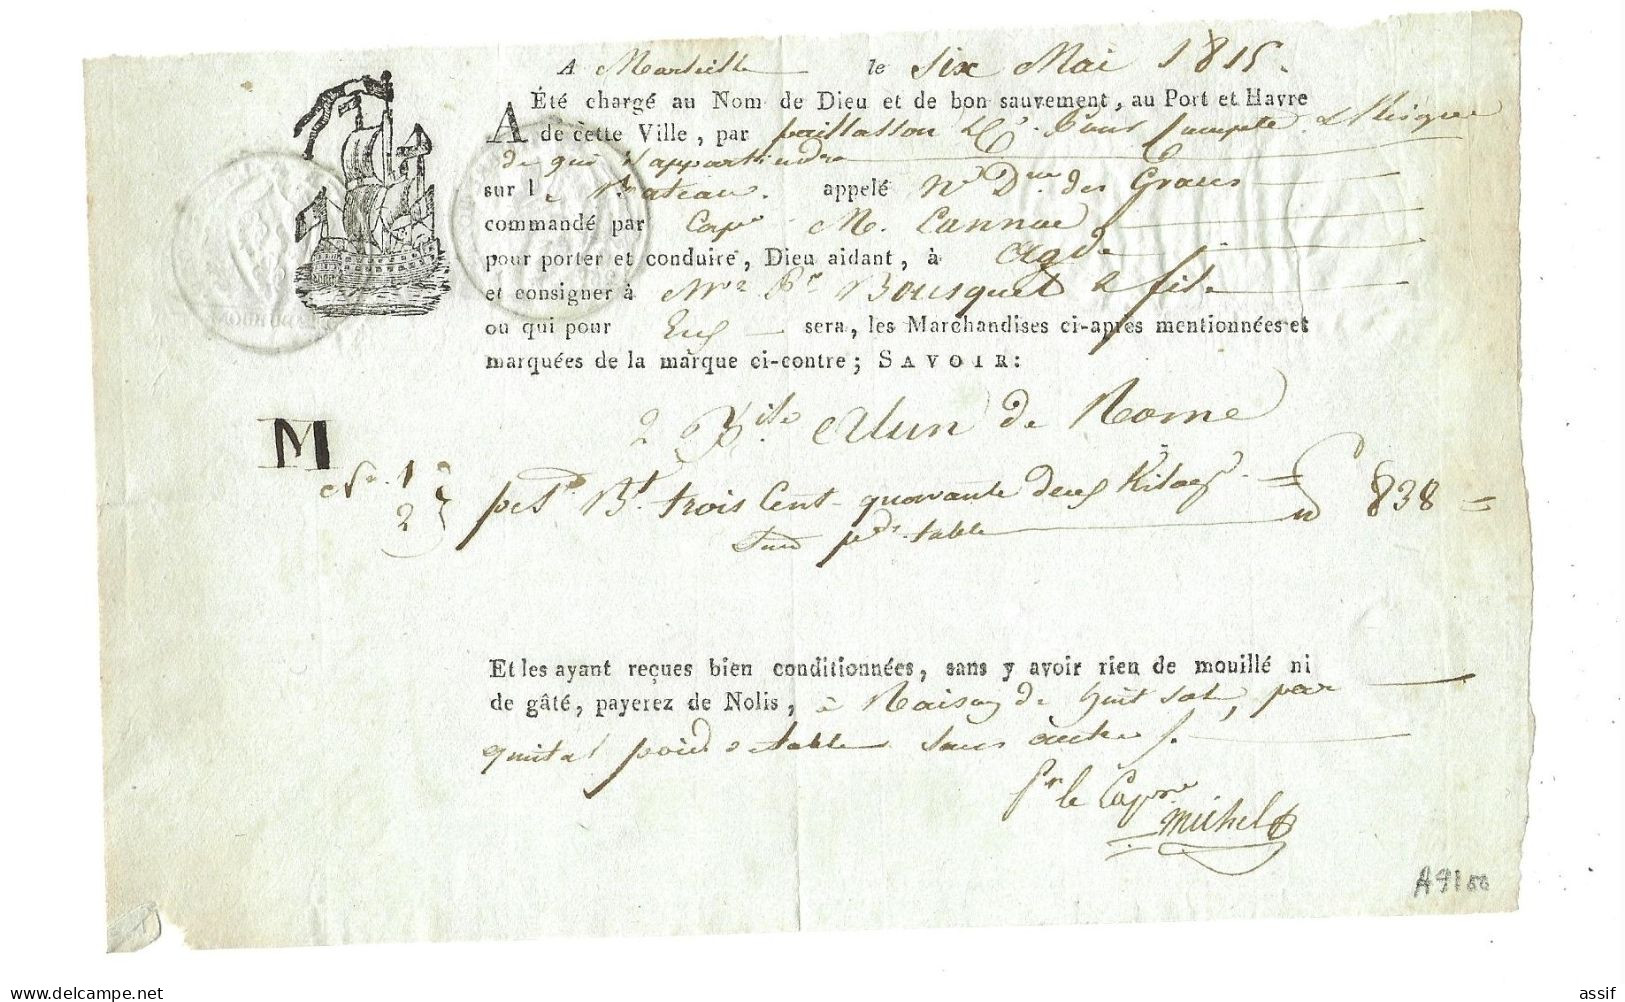 A Marseille le Six Mai 1815.
A Été chargé au Nom de Dieu et de bon sauvement, au Port et Havre
de cette Ville, par paillasson & Cie. Pour Compte & Risque
de qui il appartiendra
sur le Bateau. appelé Nre Dme des Graces
commandé par Cape M. Cannac
pour porter et conduire, Dieu aidant, à Agde
et consigner à Mrs Bousquet & fils
ou qui pour Eux sera, les Marchandises ci-apres mentionnées et
marquées de la marque ci-contre; SAVOIR:
2 Bles Alun de Rome
M
No. 1
2
pest Bt trois Cent quarante deux Kilog 838 =
poids table
Et les ayant reçues bien conditionnées, sans y avoir rien de mouillé ni
de gâté, payerez de Nolis, à Raison de huit sols, par
quintal poids de table sans autre f.
Pr le Capne
Michel
A9100
delcampe.net
assif